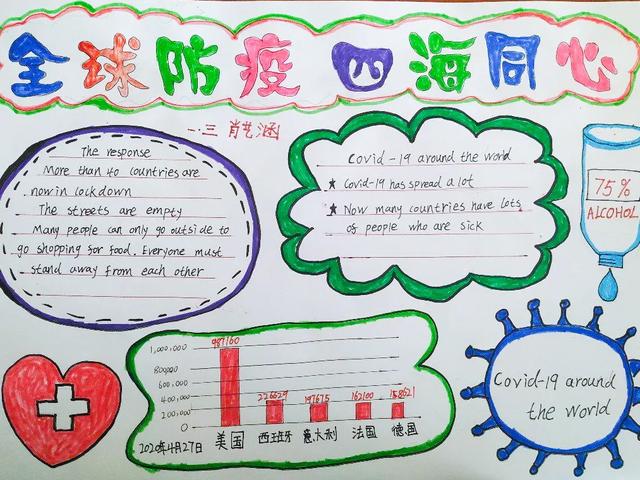 全球防疫 四海同心
一.三 肖艺涵
The response
More than 40 countries are
now in lockdown
The streets are empty
Many people can only go outside to
go shopping for food. Everyone must
stand away from each other
Covid-19 around the world
★ Covid-19 has spread a lot
★ Now many countries have lots
of people who are sick
75%
ALCOHOL
987160
1,000,000
800000
600,000
400,000
200,000
0
226629
197675
162100
美国
西班牙
意大利
法国
德国
2020年4月27日
Covid-19 around
the world